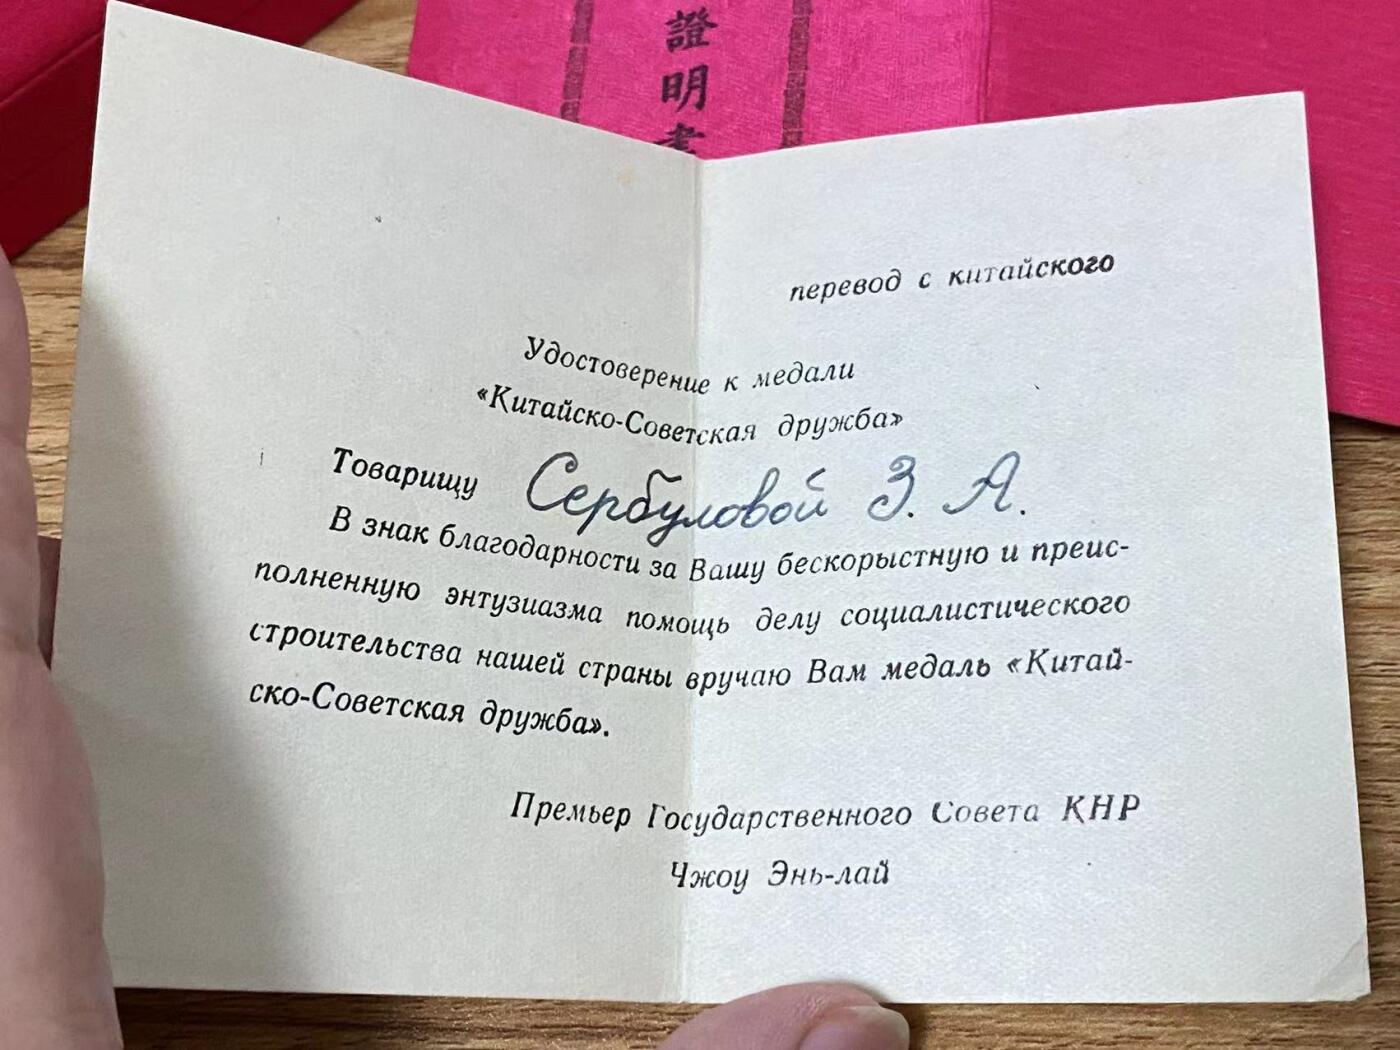 證明書
перевод с китайского
Удостоверение к медали
«Китайско-Советская дружба»
Товарищу Сербуловой З. А.
В знак благодарности за Вашу бескорыстную и преис-
полненную энтузиазма помощь делу социалистического
строительства нашей страны вручаю Вам медаль «Китай-
ско-Советская дружба».
Премьер Государственного Совета КНР
Чжоу Энь-лай